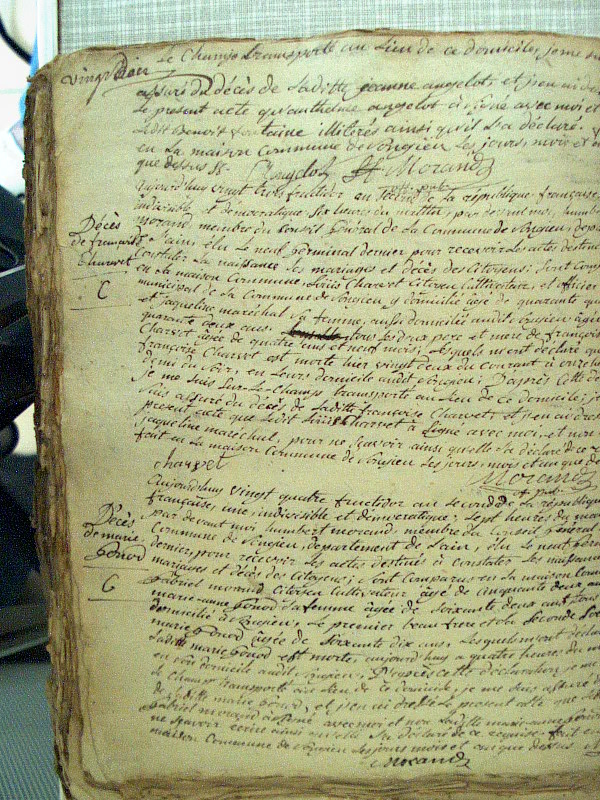 vingt deux
Le Champs transporté au Lieu de ce domicile, je me suis
assuré du décès de Laditte jeanne angelot, et j'en ai dressé
Le présent acte qu'anthelme angelot a signé avec moi et
Ledit Benoit fontaine illitérés ainsi qu'il L'a déclaré.
en La maison Commune de Vongien Les jours, mois et
que dessus
Morand
off. pub.
aujourd'huy vingt trois fructidor an Second de La république française
indivisible et démocratique, Six heures du mattin, par devant moi, humbert
morand membre du Conseil Général de La Commune de Vongien, dép
Décès
de françoise
Charvet
C
L'ain, élu Le neuf Germinal dernier pour recevoir Les actes destinés
constater La naissance, Les mariages et décès des Citoyens; Sont Comp
en La maison Commune, Louis Charvet Citoyen Cultivateur, et officier
municipal de La Commune de Vongien y domicilié agé de quarante
et jaqueline maréchal Sa femme, aussi domiciliés audit Vongien agée
quarante deux ans, tous Les deux pere et mere de françoise
Charvet agée de quatre ans et neuf mois, Lesquels m'ont déclaré que
françoise Charvet est morte hier vingt deux du Courant à onze heures
demi du Soir, en Leurs domicile audit Vongien; D'après Cette
je me suis Sur Le Champs transporté au Lieu de ce domicile; je
suis assuré du décès de Laditte françoise Charvet, et j'en ai dressé
présent acte que Ledit Louis Charvet a Signé avec moi, et non
jaqueline maréchal, pour ne Sçavoir ainsi quelle L'a déclaré de ce
fait en La maison Commune de Vongien Les jours, mois et an que de
charvet
Morand
off. pub.
Aujourd'huy vingt quatre fructidor an Second de La république
française, une indivisible et démocratique; Sept heures du ma
Décès
de marie
Gonod
C
par devant moi humbert morand, membre du Conseil Général
Commune de Vongien, département de L'ain, élu Le neuf Germ
dernier, pour recevoir Les actes destinés à constater Les naissances
mariages et décès des Citoyens; Sont Comparus en La maison Comm
Gabriel morand Citoyen Cultivateur agé de Cinquante deux an
marie-anne Gonod Sa femme agée de Soixante deux ans tous
domicilié à Vongien, Le premier beau frere et La Seconde Soe
marie Gonod agée de Soixante dix ans, Lesquels m'ont déclaré
Laditte marie Gonod est morte aujourd'huy a quatre heures du ma
en Son domicile audit Vongien, D'après cette déclaration je me
Le Champs transporté au Lieu de ce domicile, je me suis assuré d
de Laditte marie Gonod, et j'en ai dressé Le présent acte que Ledit
Gabriel morand a Signé avec moi et non Laditte marie-anne Gonod
ne Sçavoir écrire ainsi quelle L'a déclaré de ce requise, fait e
maison Commune de Vongien Les jours mois et an que dessus
Morand